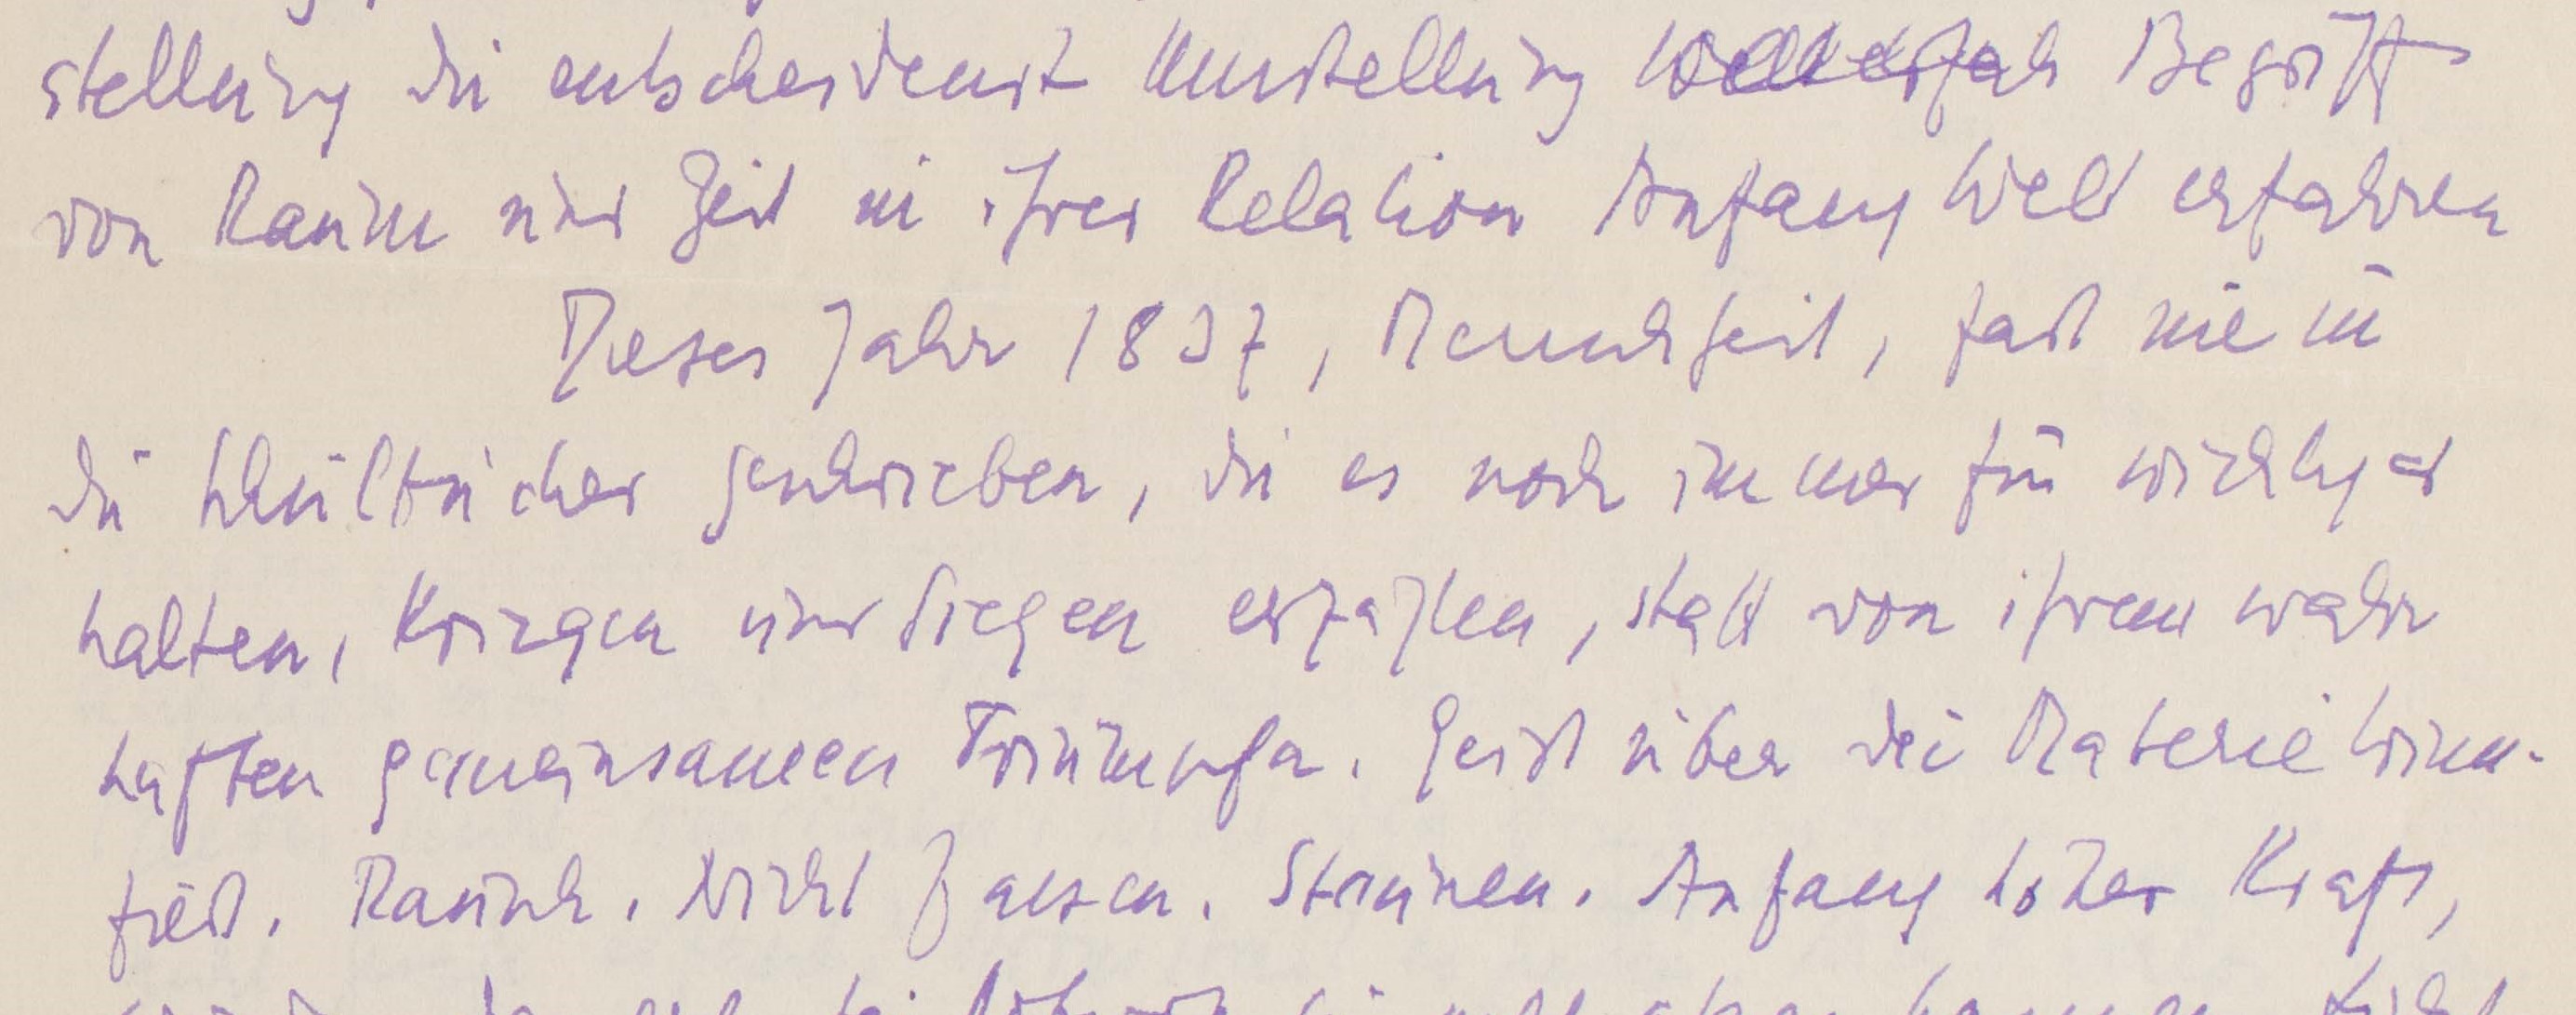 stellung die entscheidendst Umstellung Begriff
von Raum und Zeit in ihrer Relation Anfang Welt erfahren
Dieses Jahr 1837, Menschheit, fast nie in
die Schulbücher geschrieben, die es noch immer für wichtiger
halten, Kriegen und Siegen erzählen, statt von ihrem wahr
haften gemeinsamen Triumphen. Geist über die Materie trium-
fiert. Rausch. Nicht fassen. Staunen. Anfang hoher Kraft,